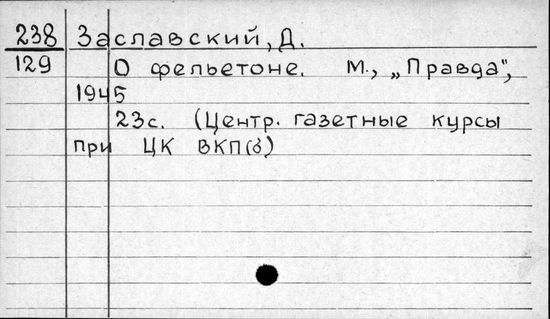 238 Заславский, Д.
129 О фельетоне. М., „Правда",
1945
23с. (Центр. газетные курсы
при ЦК ВКП(б)